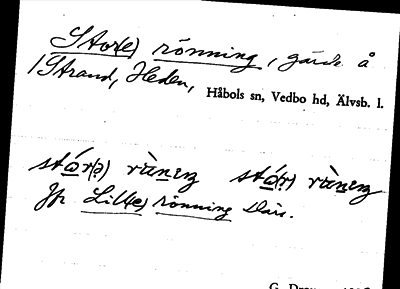 Stor(e) rönning, gärde å
1 Strand, Heden, Håbols sn, Vedbo hd, Älvsb. l.
stór(ə) rànɪŋ stó(r) rànɪŋ
Jfr Lill(e) rönning därs.